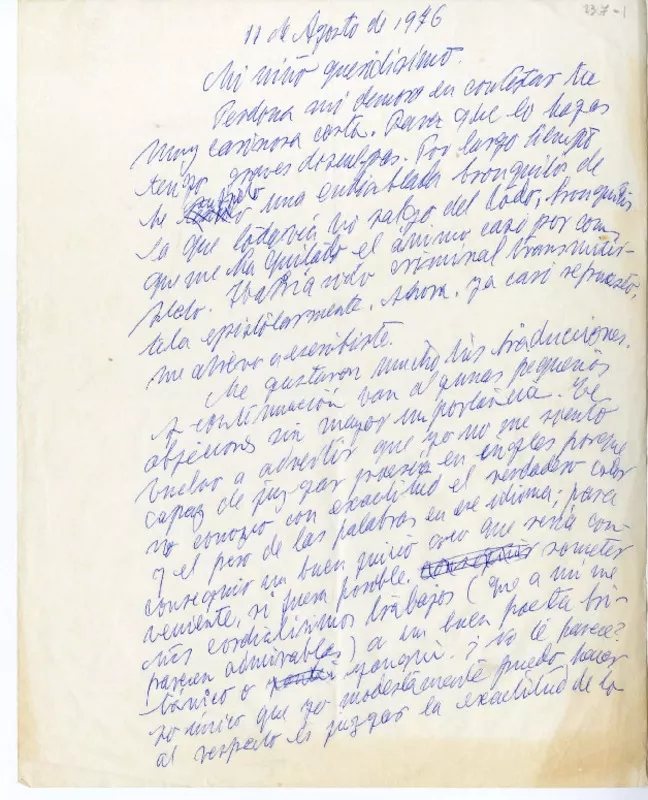 237-1
11 de Agosto de 1976
Mi niño queridísimo.
Perdona mi demora en contestar tu
muy cariñosa carta. Para que lo hagas
tengo graves disculpas. Por largo tiempo
he sufrido una endiablada bronquitis de
la que todavía no salgo del todo, bronquitis
que me ha quitado el ánimo casi por com-
pleto. Habría sido criminal transmitír-
tela epistolarmente. Ahora, ya casi repuesto,
me atrevo a escribirte.
Me gustaron mucho tus traducciones.
A continuación van algunas pequeñas
objeciones sin mayor importancia. Te
vuelvo a advertir que yo no me siento
capaz de juzgar poesía en inglés porque
no conozco con exactitud el verdadero color
y el peso de las palabras en ese idioma; para
conseguir un buen juicio creo que sería con-
veniente, si fuera posible, someter
tus cordialísimos trabajos (que a mí me
parecen admirables) a un buen poeta bri-
tánico o yanqui. ¿No te parece?
Lo único que yo modestamente puedo hacer
al respecto es juzgar la exactitud de la